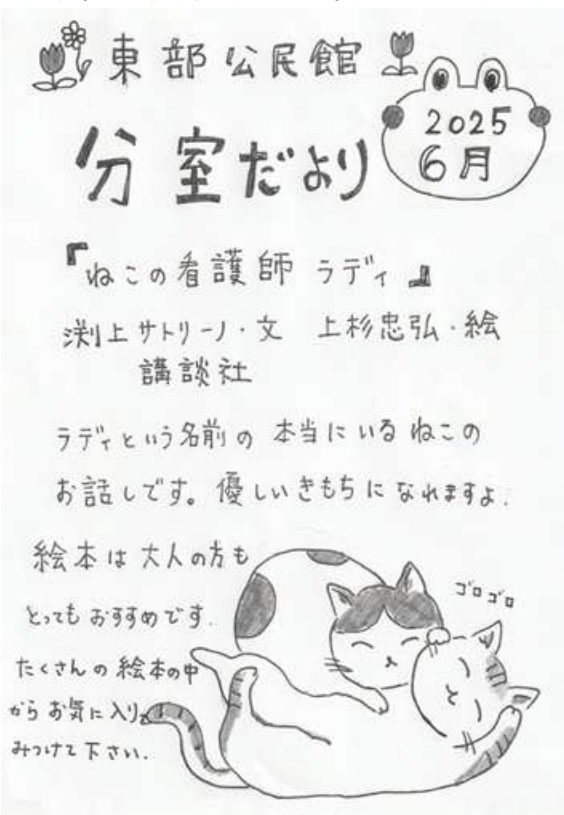 東部公民館
2025
6月
分室だより
『ねこの看護師 ラディ』
渕上サトリーノ・文 上杉忠弘・絵
講談社
ラディという名前の 本当にいる ねこの
お話しです。優しいきもちに なれますよ.
絵本は 大人の方も
とっても おすすめです.
たくさんの 絵本の中
から お気に入りを
みつけて下さい.
ゴロゴロ